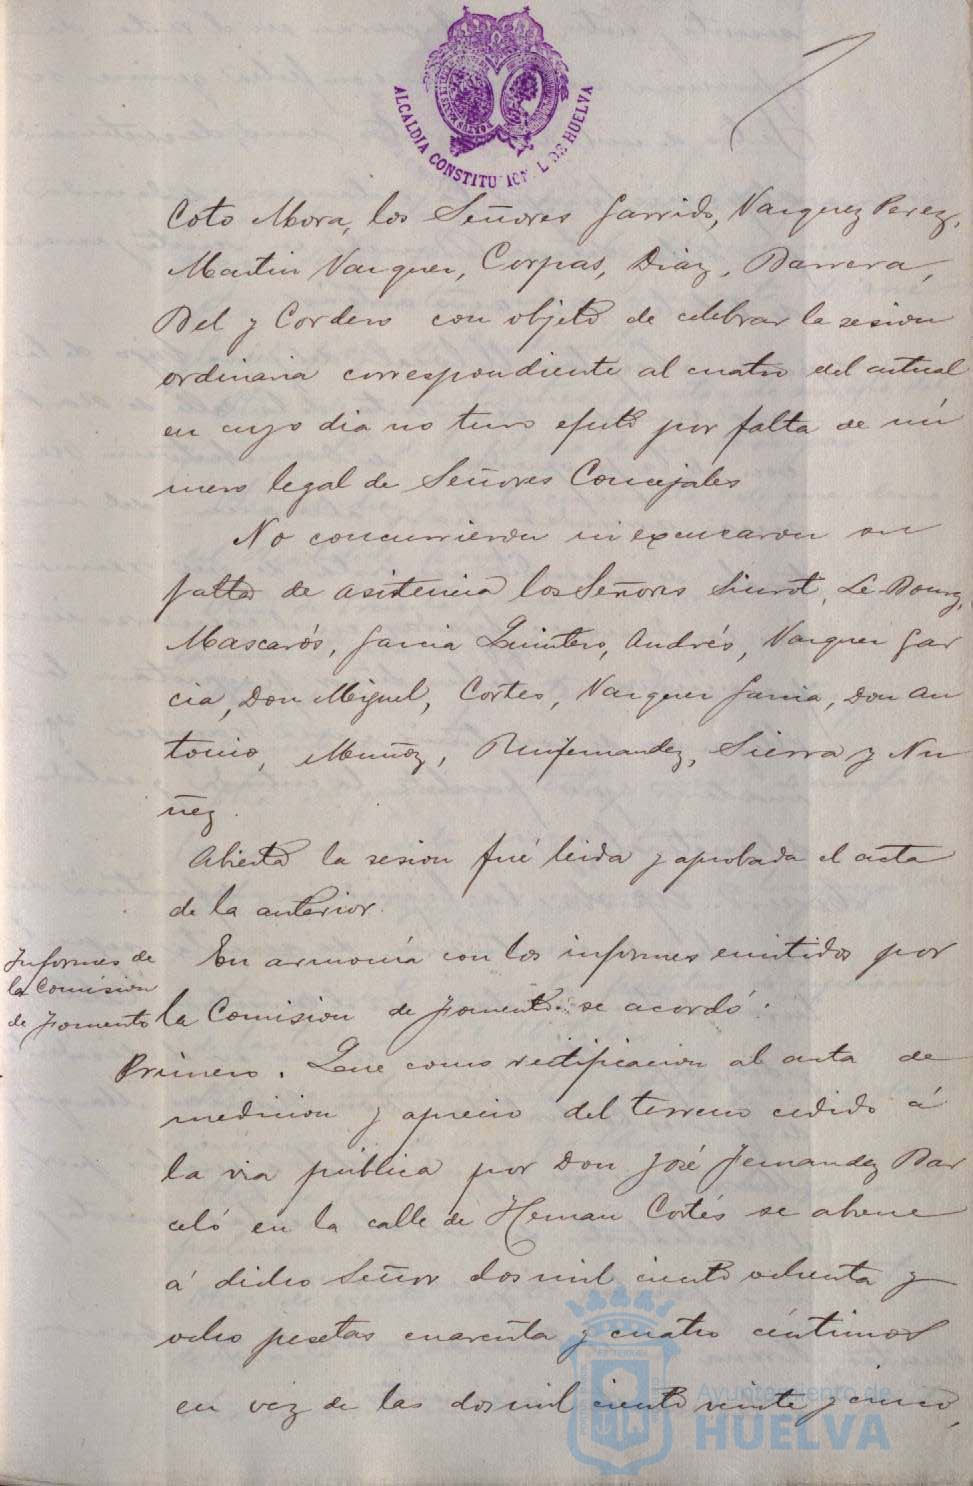 ALCALDIA CONSTITUCIONAL DE HUELVA
Coto Mora, los Señores Garrido, Vazquez Perez,
Martin Vazquez, Corpas, Diaz, Barrera,
Bel y Cordero con objeto de celebrar la sesion
ordinaria correspondiente al cuatro del actual
en cuyo dia no tuvo efecto por falta de nú
mero legal de Señores Concejales
No concurrieron ni excusaron su
falta de asistencia los Señores Siurot, Le Bourg,
Mascarós, Garcia Quintero, Andrés, Vazquez Gar
cia, Don Miguel, Cortes, Vazquez Garcia, Don An
tonio, Muñoz, Ruifernandez, Sierra y Nu
ñez.
Abierta la sesion fué leida y aprobada el acta
de la anterior.
Informes de
la Comision
de Fomento
En armonía con los informes emitidos por
la Comision de Fomento se acordó:
Primero. Que como rectificacion al acta de
medicion y aprecio del terreno cedido á
la via pública por Don José Fernandez Bar
celó en la calle de Hernan Cortés se abone
á dicho Señor dos mil ciento ochenta y
ocho pesetas cuarenta y cuatro céntimos
en vez de las dos mil ciento veinte y cinco,
Ayuntamiento de
HUELVA